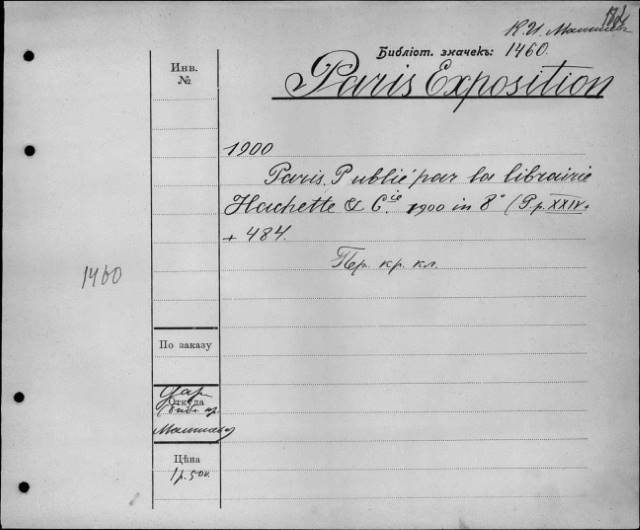 Библіот. значекъ: 1460.
Paris Exposition
Инв.
№
1900
Paris. Publié par la librairie
Hachette & Cie. 1900 in 8° (P.p. XXIV.
+ 484.
Пр. кр. кл.
1460
По заказу
Дар
Откуда
Цѣна
1р. 50к.